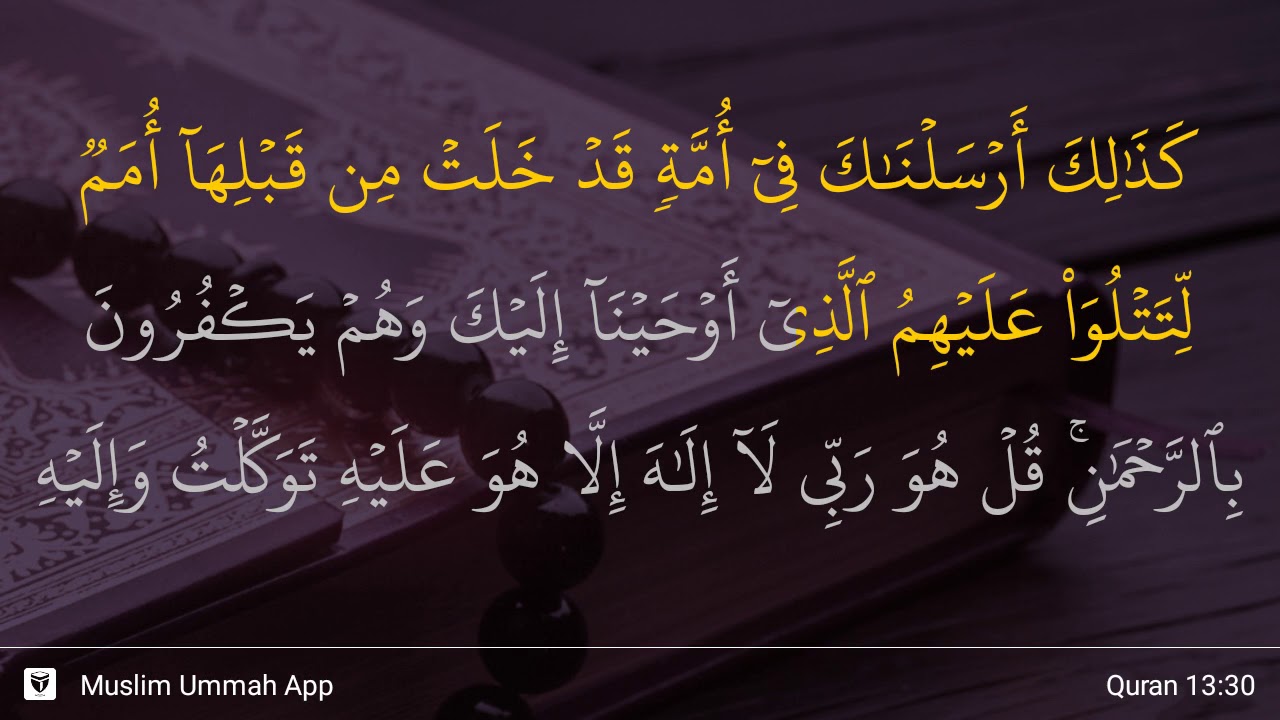 كَذَٰلِكَ أَرۡسَلۡنَٰكَ فِيٓ أُمَّةٖ قَدۡ خَلَتۡ مِن قَبۡلِهَآ أُمَمٞ
لِّتَتۡلُوَاْ عَلَيۡهِمُ ٱلَّذِيٓ أَوۡحَيۡنَآ إِلَيۡكَ وَهُمۡ يَكۡفُرُونَ
بِٱلرَّحۡمَٰنِۚ قُلۡ هُوَ رَبِّي لَآ إِلَٰهَ إِلَّا هُوَ عَلَيۡهِ تَوَكَّلۡتُ وَإِلَيۡهِ
Muslim Ummah App
Quran 13:30